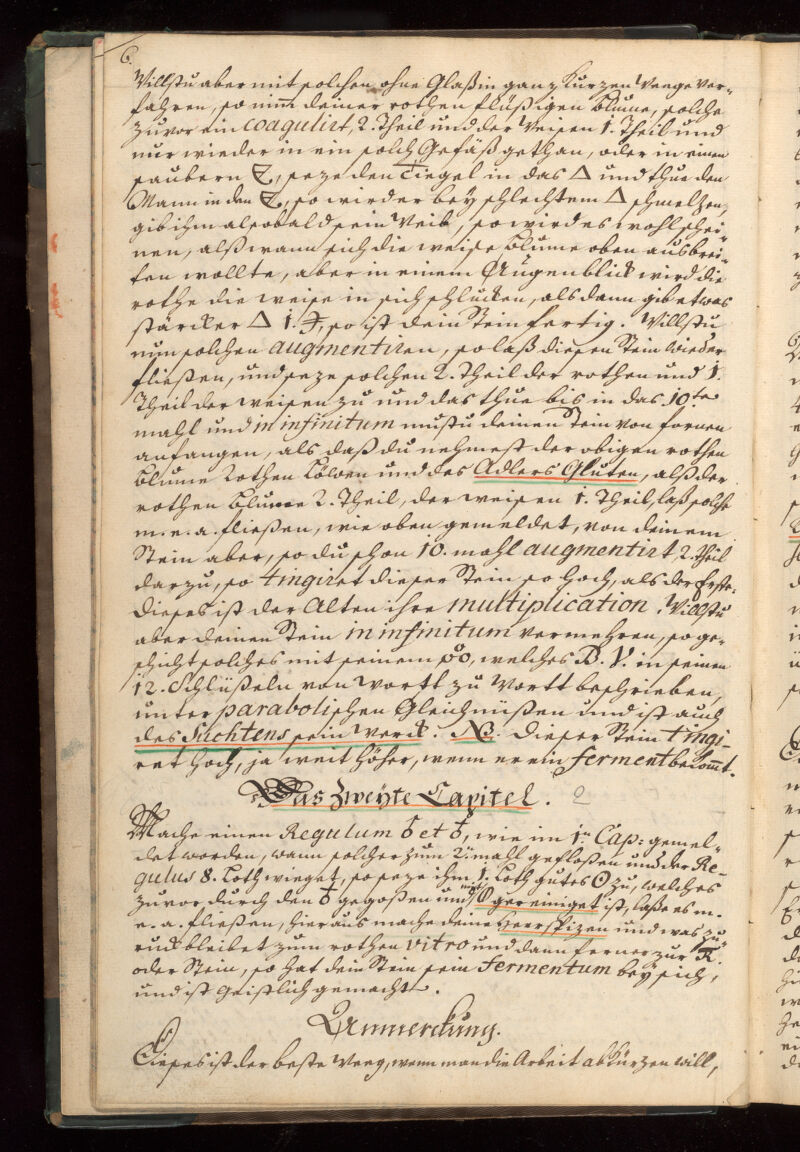 6.
Willstu aber mit solchen ohne Glaß in ganz kurzen Weege ver-
fahren, so nim̅ deiner rothen flüßigen Blume, solche
zuvor ein coagulirt, 2. Theil und der Weisen 1. Theil und
nur wieder in ein solch Gefäß gethan, oder in einen
saubern, seze den Tiegel in das 🜂 und thue den
Mann in den, so wird er bey schlechtem 🜂 schmelzen,
gib ihm alsobald sein Weib, so wird es wohl schei-
nen, alß wann sich die weise Blume oben ausbrei-
ten wollte, aber in einem Augenblick wird die
rothe die weise in sich schlucken, als dann gib etwas
stärcker 🜂 1. so ist dein Stein fertig. Willstu
nun solchen augmentiren, so laß diesen Stein wieder
fließen, und seze solchen 2. Theil der rothen und 1.
Theil der weisen zu und das thue bis in das 10te
mahl und in infinitum mustu deinen Stein von fornen
anfangen, als daß du nehmest der obigen rothen
Blume rothen Löwen und des Adlers Gluten, alß der
rothen Blume 2. Theil, der weisen 1. Theil, laß solche
m. e. a. fließen, wie oben gemeldet, von deinem
Stein aber, so du schon 10. mahl augmentirt 2. theil
darzu, so tingiret dieser Stein so hoch, als der Erste.
Dieses ist der Alten ihre multiplication. Willstu
aber deinen Stein in infinitum vermehren, so ge-
schicht solches mit seinem, welches B. V. in seinen
12. Schlüßeln von Wortt zu Wortt beschrieben,
unter parabolischen Gleichnüßen und ist auch
des Suchtens sein Werck. NB. Dieser Stein tingi-
ret hoch, ja weit höher, wenn er ein ferment bekom̅t.
Das Zweyte Capitel. 2
Mache einen Regulum ♁ et ♂, wie im 1n Cap: gemel-
det worden, wann solcher zum 2n mahl gefloßen und der Re-
gulus 8. Loth wieget, so seze ihm 1. Loth gutes ☉ zu, welches
zuvor durch den ♁ gegoßen und mit gereiniget ist, laße es m.
e. a. fließen, hieraus mache deine und was zu-
rück bleibet zum rothen vitro und dann ferner zur
oder Stein, so hat dein Stein sein fermentum bey sich,
und ist geistlich gemacht.
Anmerckung.
Dieses ist der beste Weeg, wenn man die Arbeit abkürzen will,